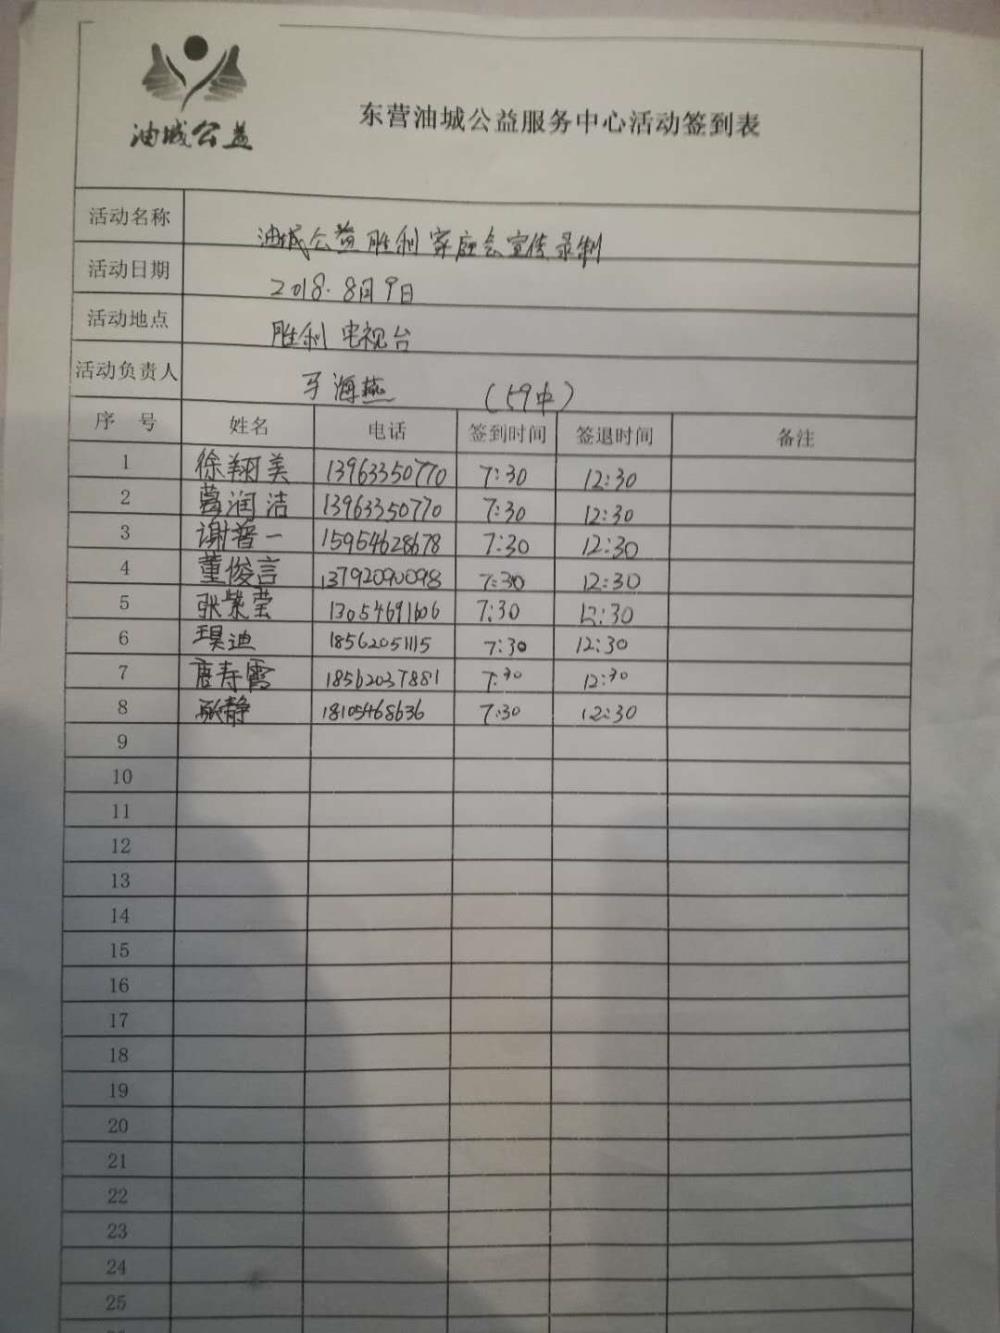 油城公益
东营油城公益服务中心活动签到表
活动名称 油城公益胜利家庭会宣传录制
活动日期 2018.8月9日
活动地点 胜利电视台
活动负责人 海燕 (59中)
序号 姓名 电话 签到时间 签退时间 备注
1 徐翔美 13963350770 7:30 12:30
2 葛润洁 13963350770 7:30 12:30
3 谢普一 15954628678 7:30 12:30
4 董俊言 13792090098 7:30 12:30
5 张紫莹 13054691606 7:30 12:30
6 迪 18562051115 7:30 12:30
7 唐寿霞 18562037881 7:30 12:30
8 耿静 18105468636 7:30 12:30
9
10
11
12
13
14
15
16
17
18
19
20
21
22
23
24
25